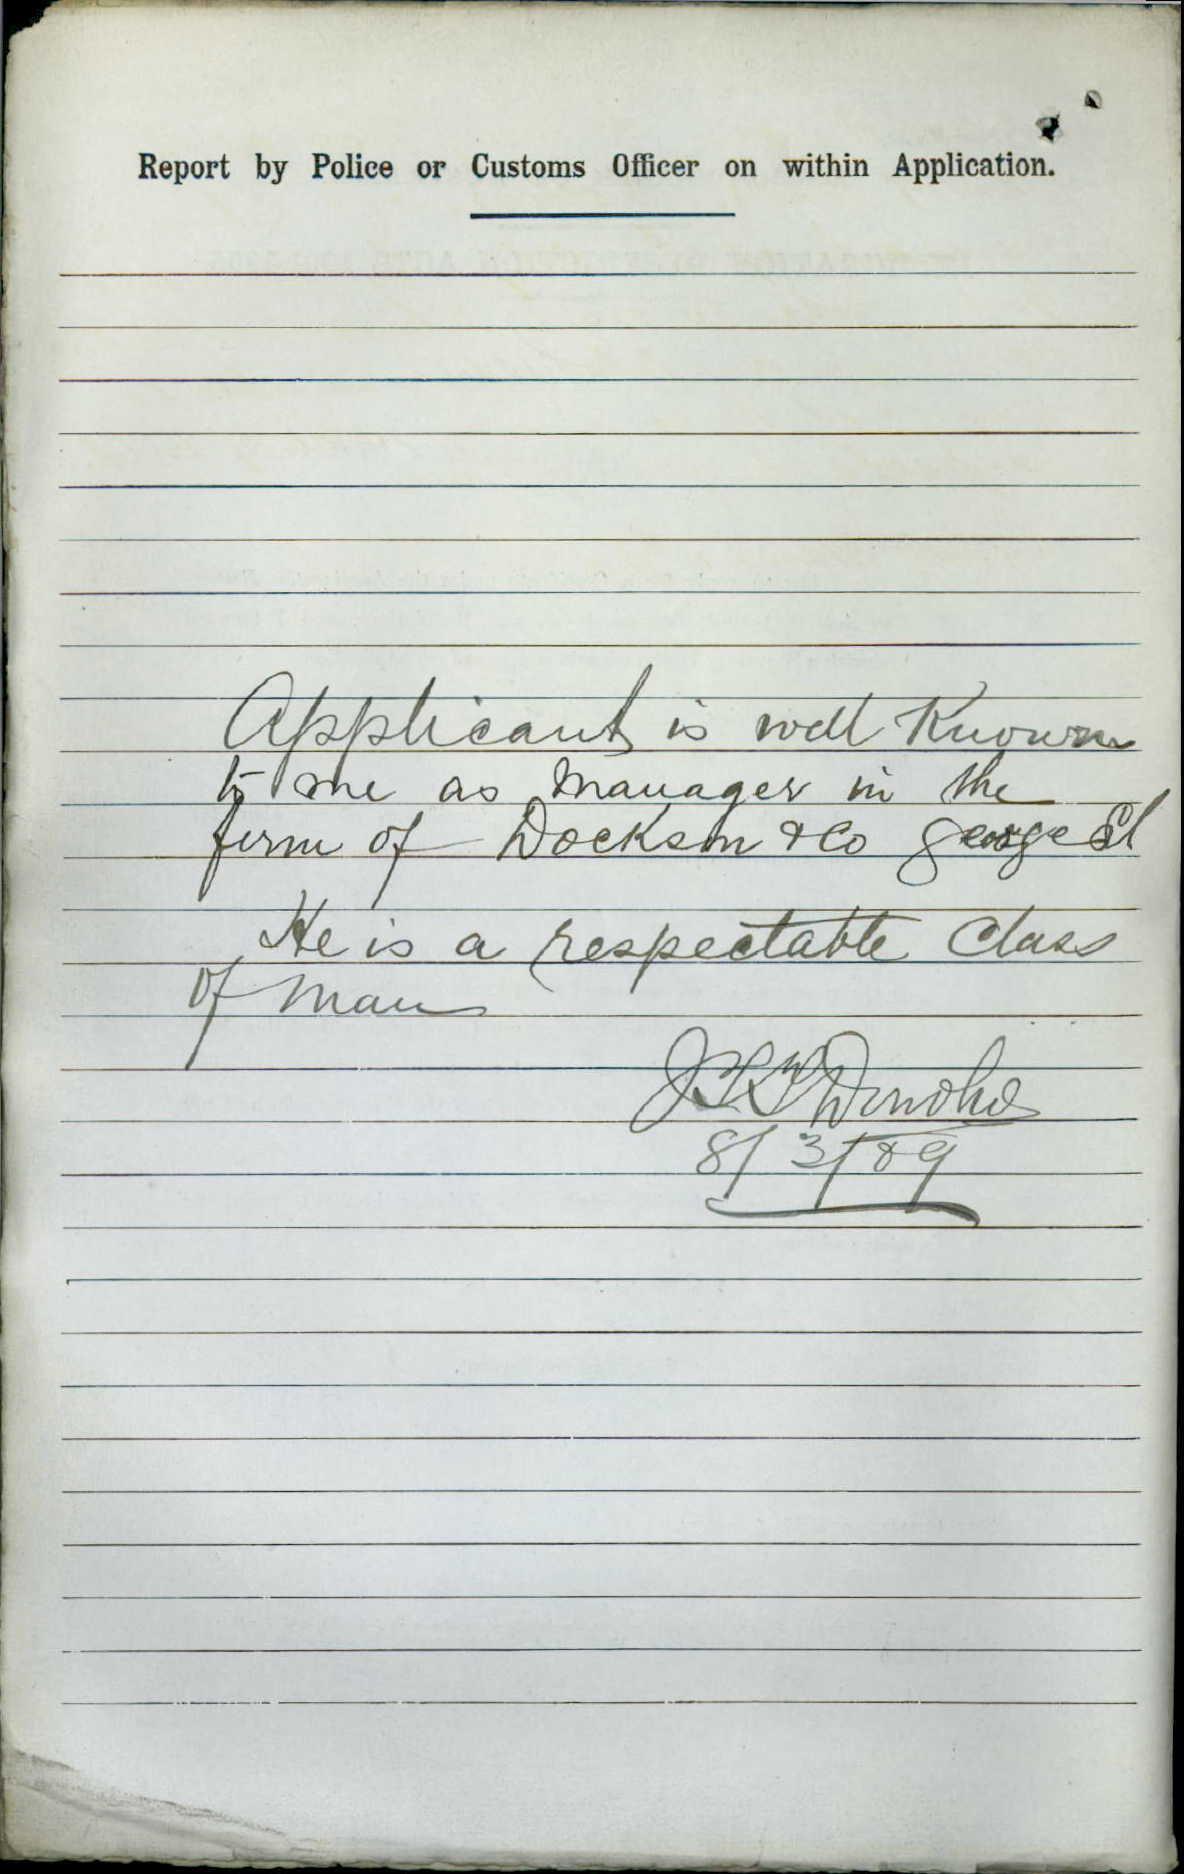 Report by Police or Customs Officer on within Application.
Applicant is well Known
to me as Manager in the
firm of Dockson & Co George St
He is a respectable Class
of Man
Donohoe
8/3/09